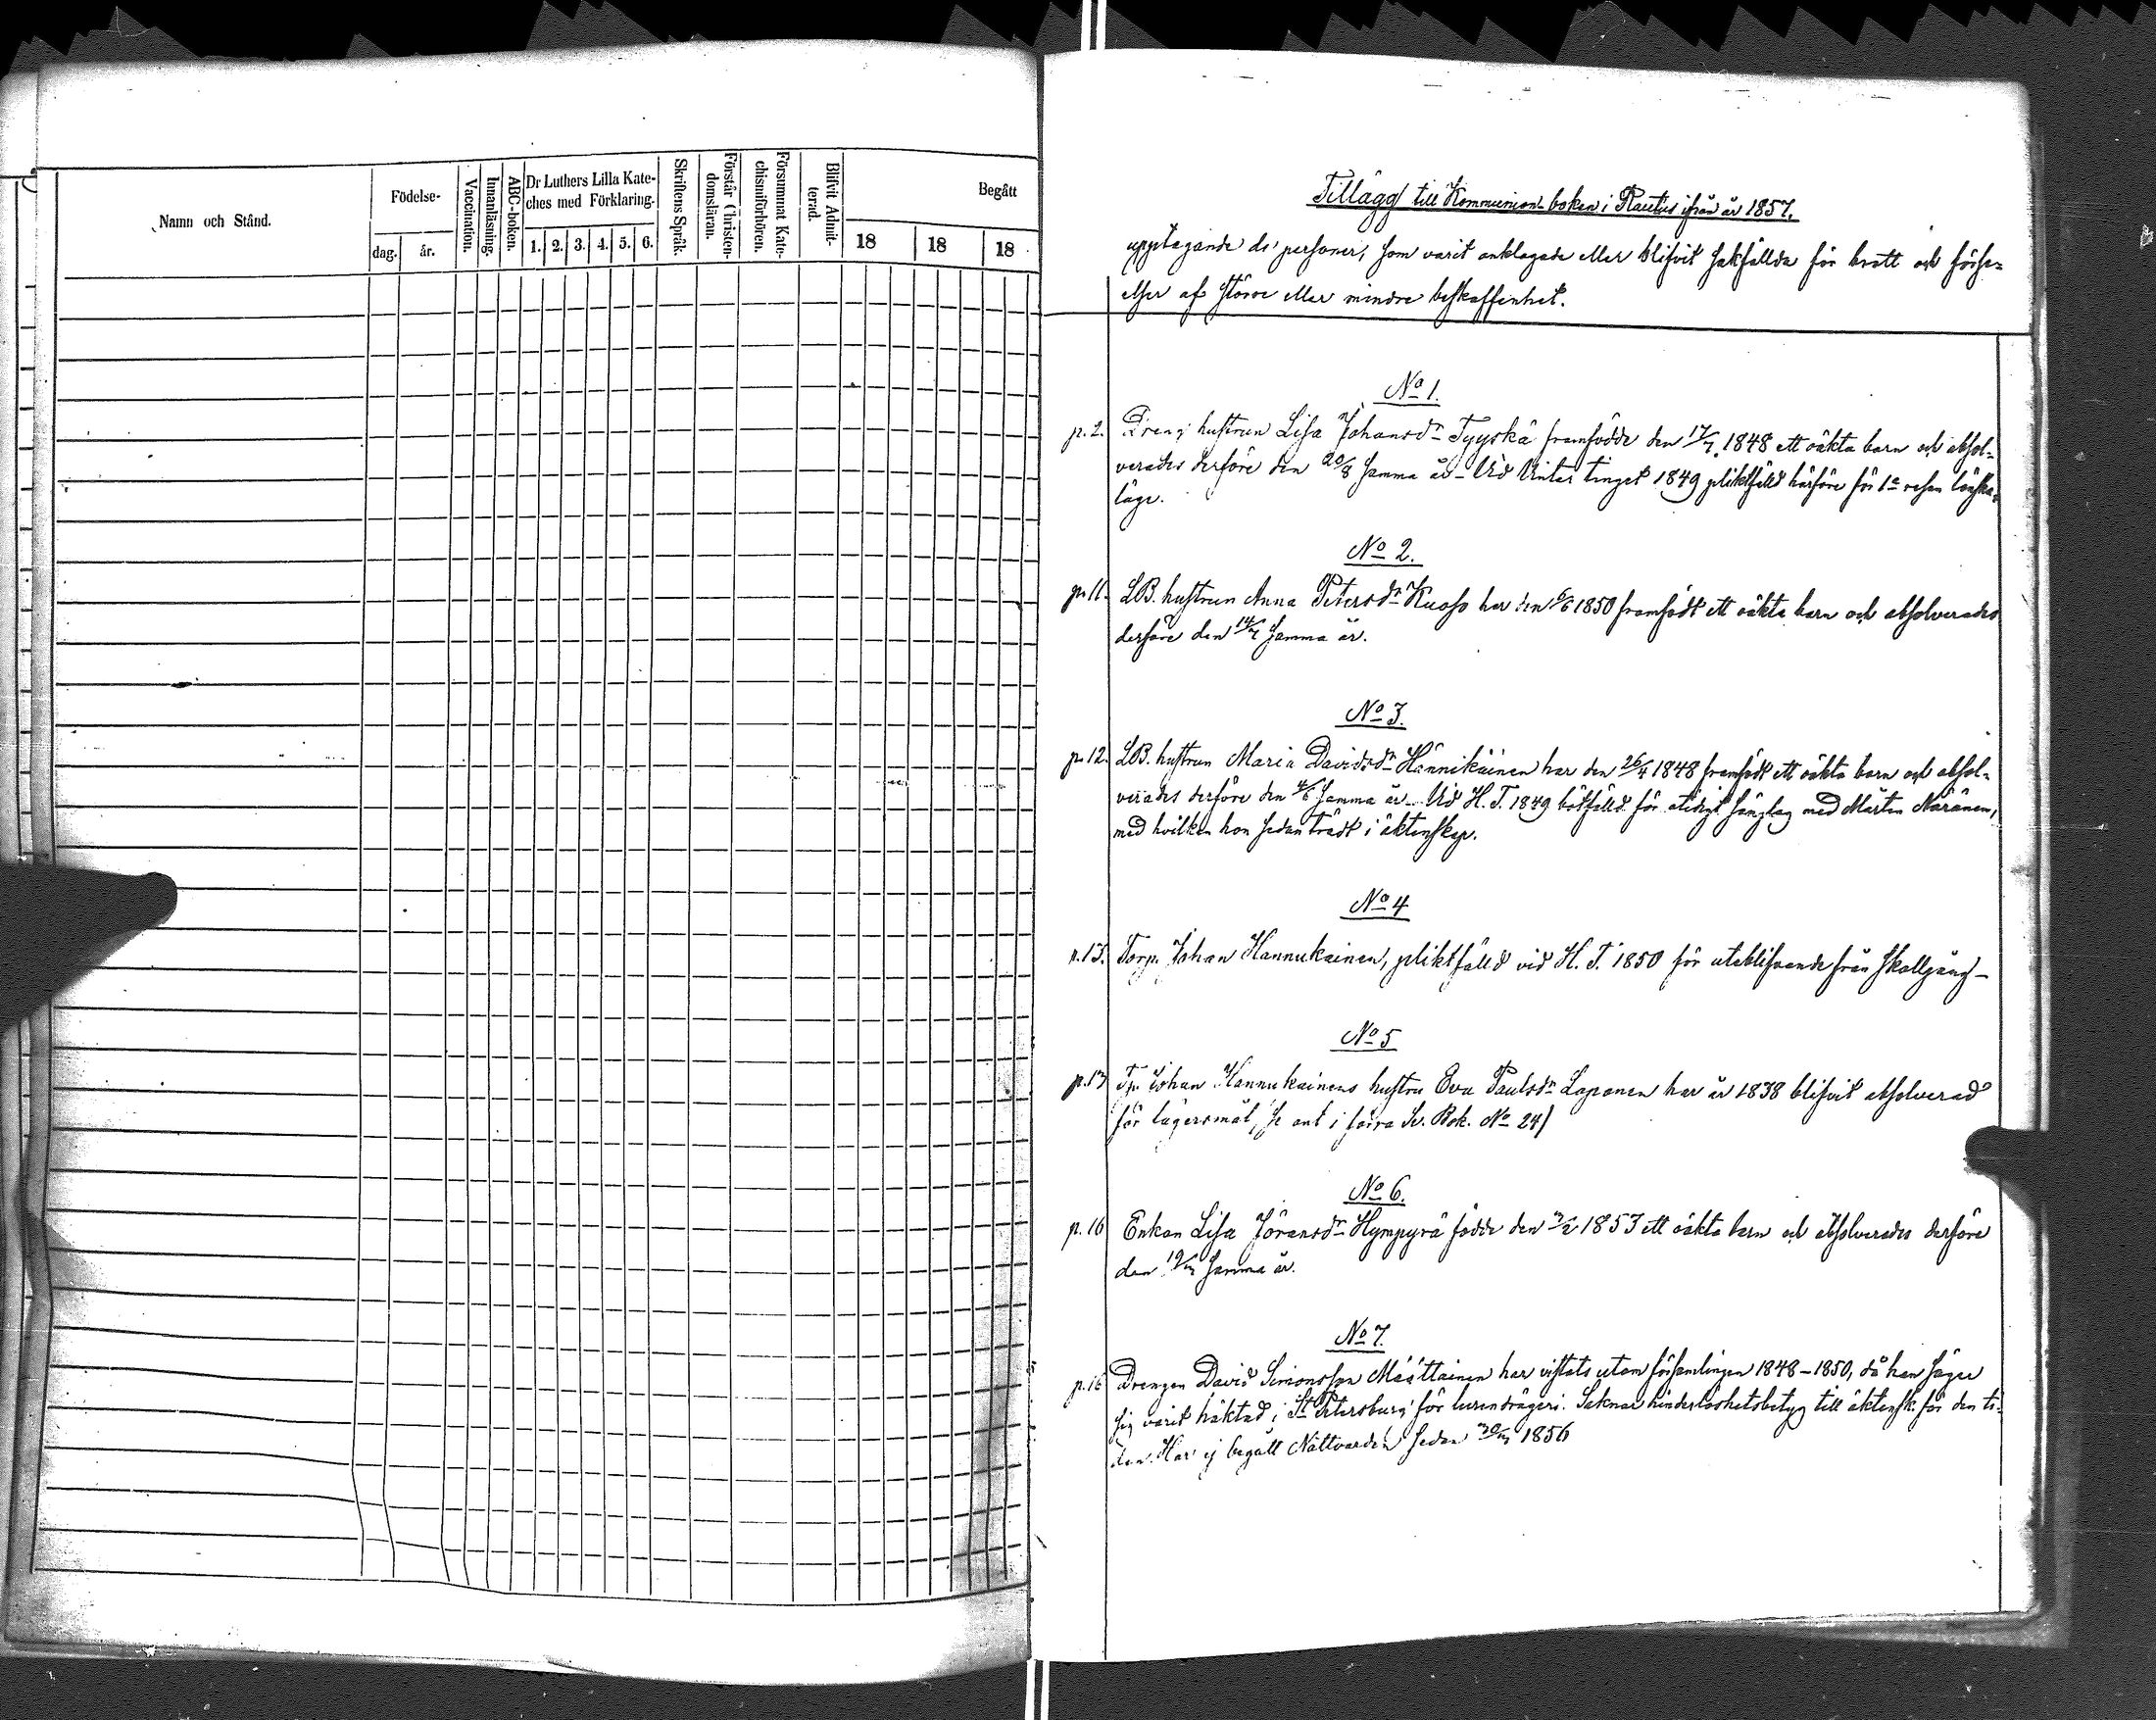 Namn och Stånd.
Födelse-
dag. år.
Vaccination.
Innanläsning.
ABC-boken.
Dr Luthers Lilla Kate-
ches med Förklaring.
1. 2. 3. 4. 5. 6.
Skriftens Språk.
Förstår Christen-
domsläran.
Försummat Kate-
chismiförhören.
Blifvit Admit-
terad.
Begått
18 18 18
Tillägg till Kommunion boken i Rautus ifrån år 1857.
upptagande de personer, som varit anklagade eller blifvit sakfällda för brott och förse-
elser af större eller mindre beskaffenhet.
No 1.
p. 2. Dreng hustrun Lisa Johansdr Tyyskä framfödde den 17/7 1848 ett oäkta barn och absol-
verades derföre den 20/8 samma år - Vid Vinter tinget 1849 pliktfälld härföre för 1a resan lönska-
läge.
No 2.
p. 11. LB. hustrun Anna Petersdr Kuosa har den 6/6 1850 framfödt ett oäkta barn och absolverades
derföre den 14/7 samma år.
No 3.
p. 12. LB. hustrun Maria Davidsdr Hännikäinen har den 26/4 1848 framfödt ett oäkta barn och absol-
verades derföre den 4/6 samma år - Vid H. T. 1849 bötfälld för otidigt sänglag med Mårten Näränen,
med hvilken hon sedan trädt i äktenskap.
No 4
p. 13. Torp. Johan Hannukainen, pliktfälld vid H. T. 1850 för uteblifvande från skallgång -
No 5
p. 13 Tp. Johan Hannukainens hustru Eva Paulsdr Laponen har år 1838 blifvit absolverad
för lägersmål, se ant i förra Bok. No 24)
No 6.
p. 16 Enkan Lisa Göransdr Hympyrä födde den 3/2 1853 ett oäkta barn och absolverades derföre
den samma år.
No 7.
p. 16 Drengen David Simonsson Määttäinen har vistats utom församlingen 1848-1850, då han säger
sig varit häktad i St Petersburg för lurendrägeri. Saknar hinderlöshetsbetyg till äktensk. för den ti-
den. Har ej begått Nattvarden sedan 1856